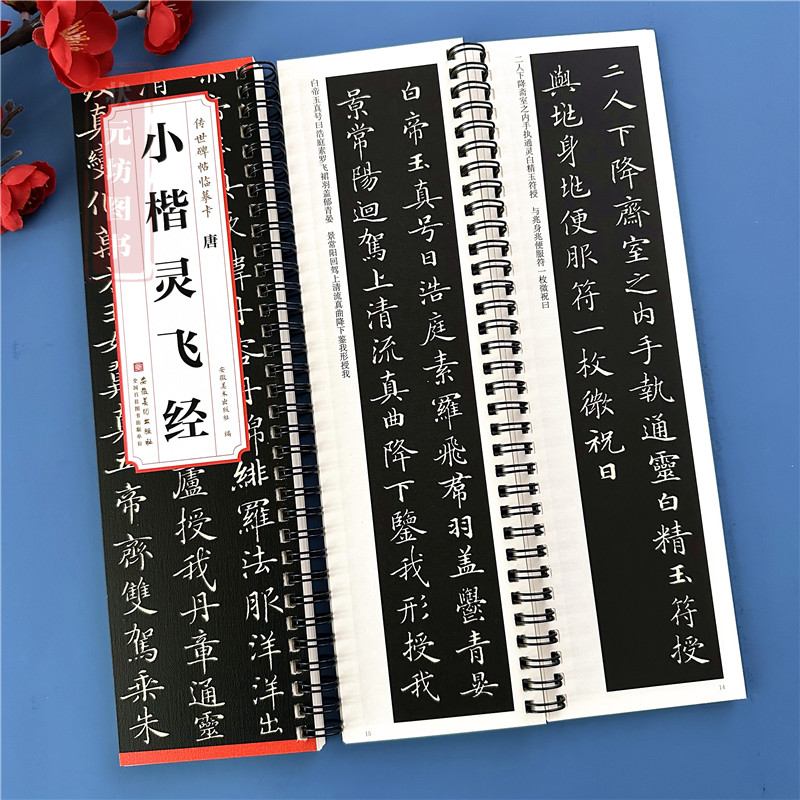 传世碑帖临摹卡
唐
小楷灵飞经
安徽美术出版社 编
安徽美术出版社
全国百佳图书出版单位
状元坊图书
出
緋羅法服洋洋
盧授我丹章通靈
帝齊雙駕乘朱
二人下降齋室之内手執通靈白精玉符授
與兆身兆便服符一枚微祝曰
二人下降斋室之内手执通灵白精玉符授 与兆身兆便服符一枚微祝曰
14
白帝玉真号曰浩庭素羅飛帬羽盖鬱青晏
景常陽迴駕上清流真曲降下鑒我形授我
白帝玉真号曰浩庭素罗飞裙羽盖郁青晏 景常阳回驾上清流真曲降下鉴我形授我
15